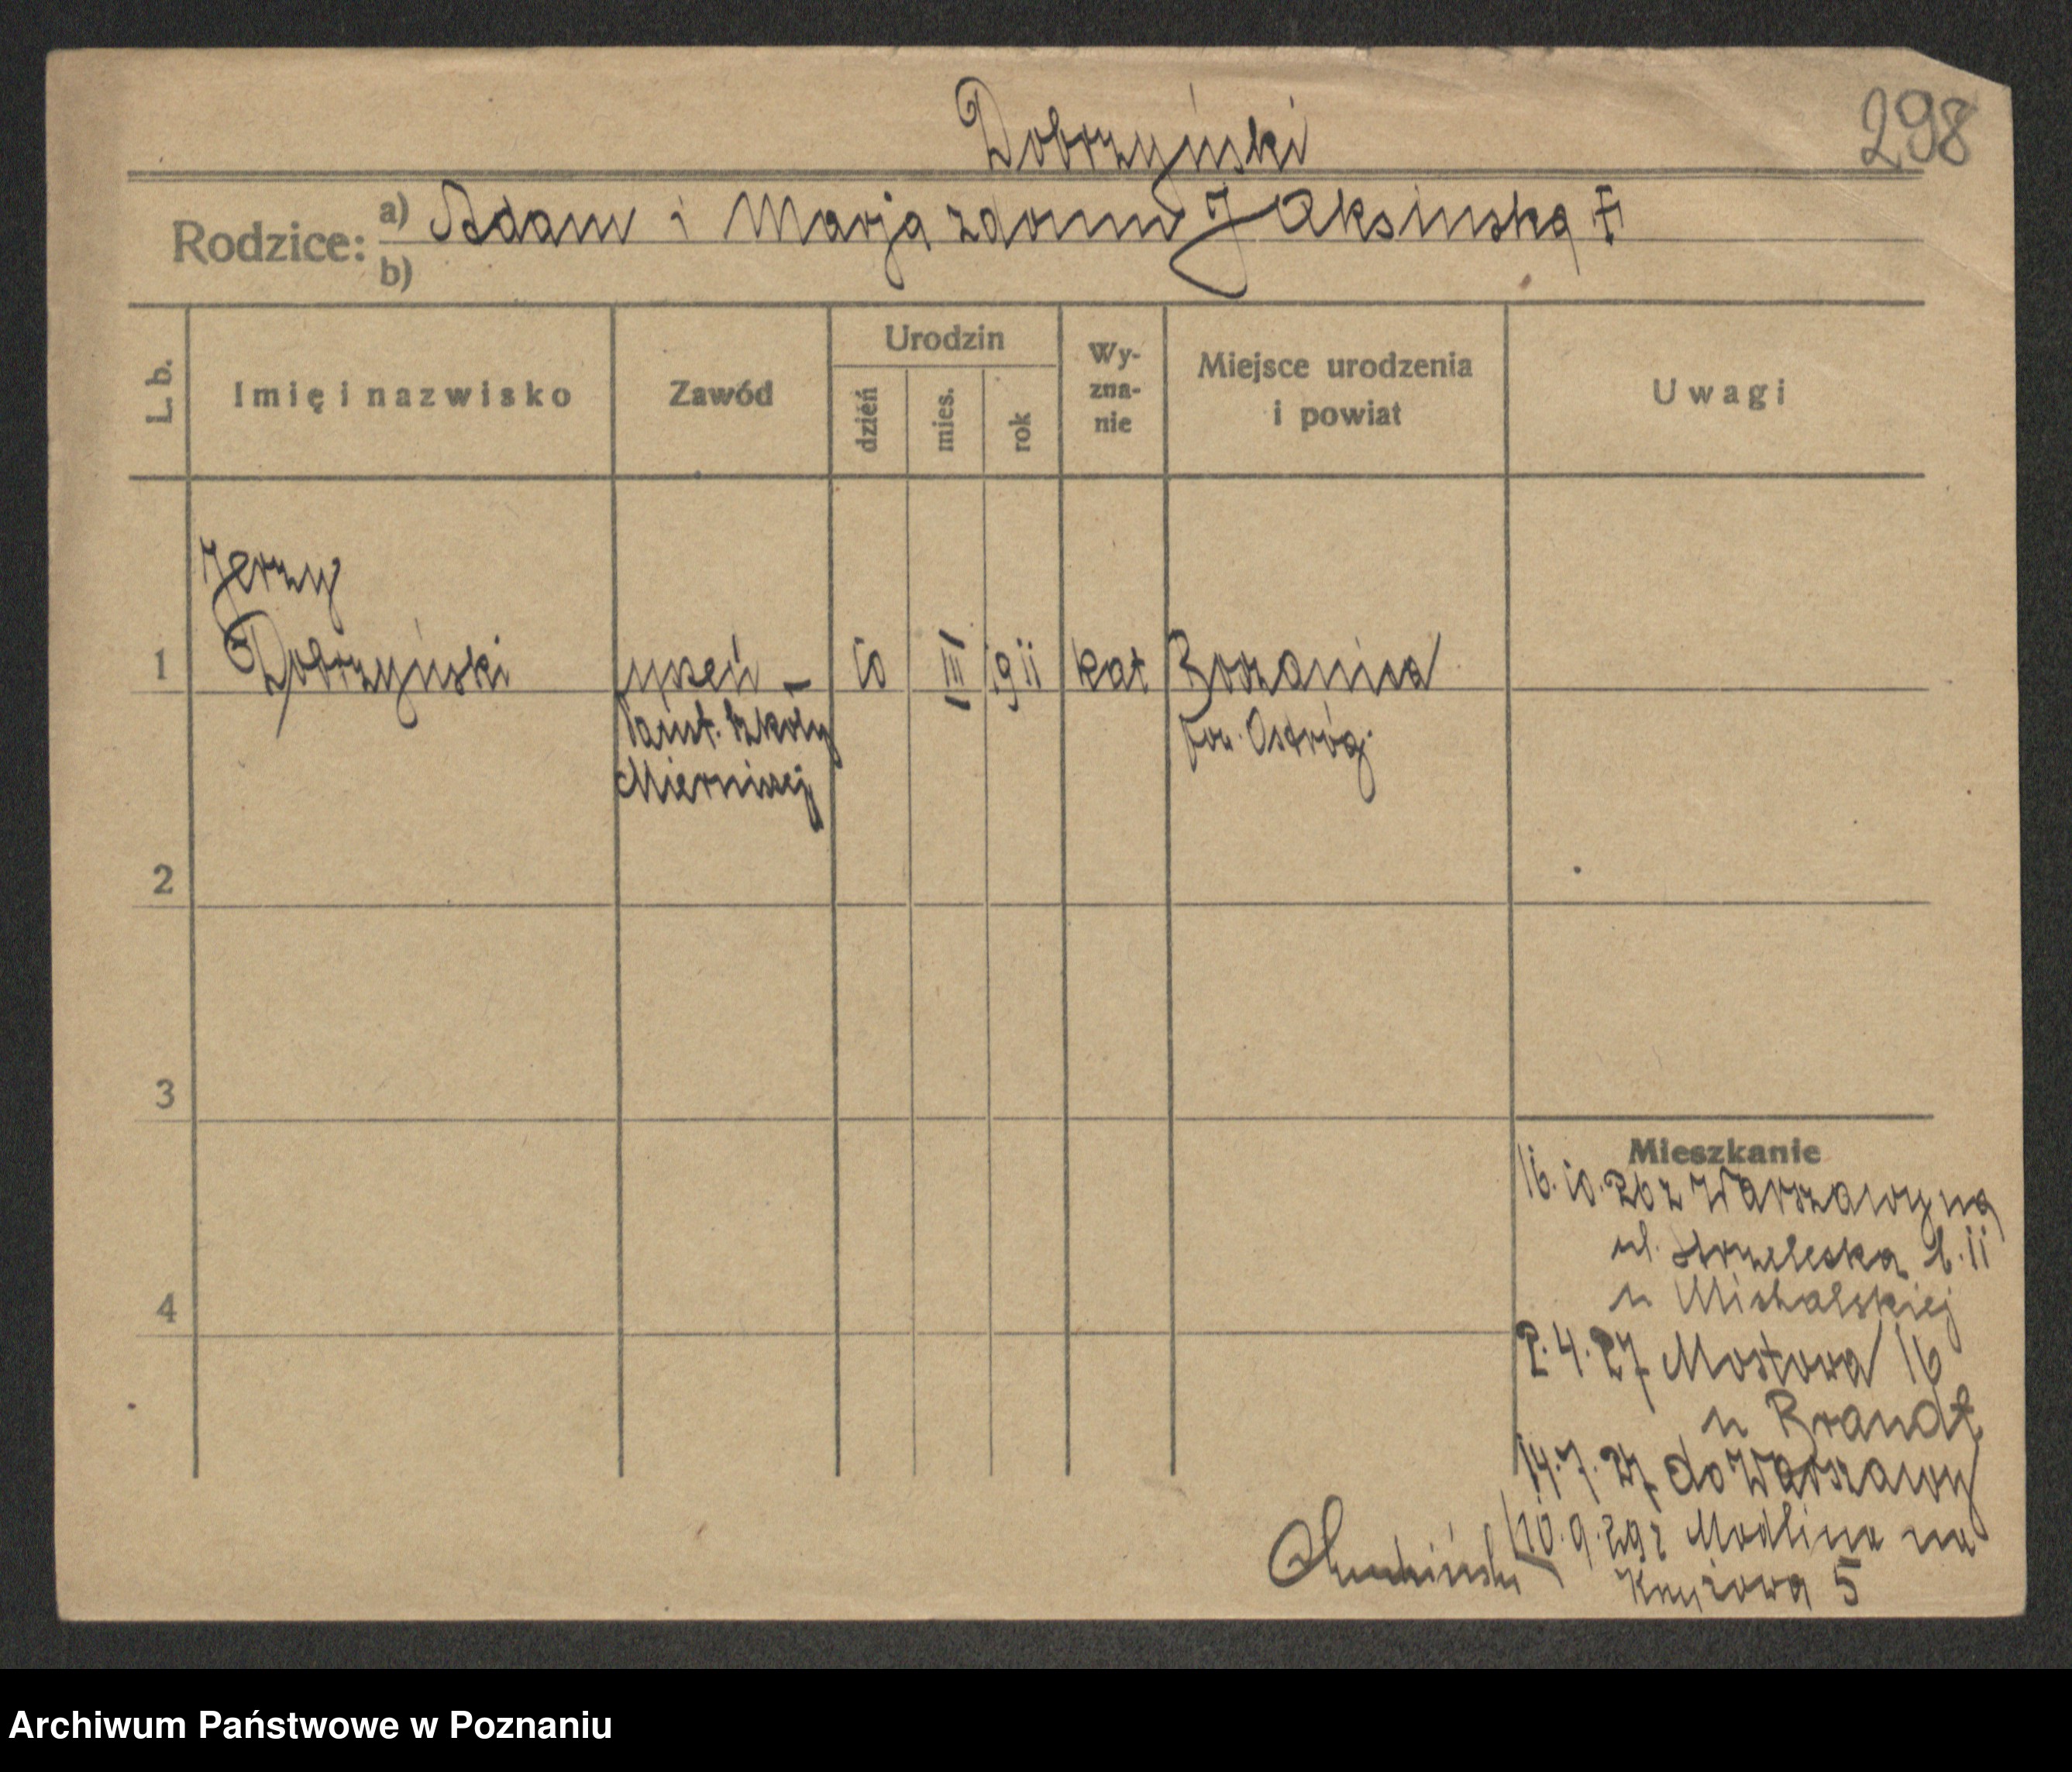 298
Dobrzyński
Rodzice: a) Adam i Marja z domu Jaksińska
b)
L. b. Imię i nazwisko Zawód Urodzin dzień mies. rok Wy-zna-nie Miejsce urodzenia i powiat Uwagi
Jerzy
1 Dobrzyński uczeń – 10 III 1911 kat
Państ. Szkoły pow. Ostróg.
Mierniczej
2
3
Mieszkanie
16.10.26 z Warszawy na
ul. Strzelecka l. 11
u Michalskiej
4
2.4.27 Mostowa 16
u Brandt
14.7.27 do Warszawy
10.9.29 z Modlina na
Krzyżowa 5
Archiwum Państwowe w Poznaniu